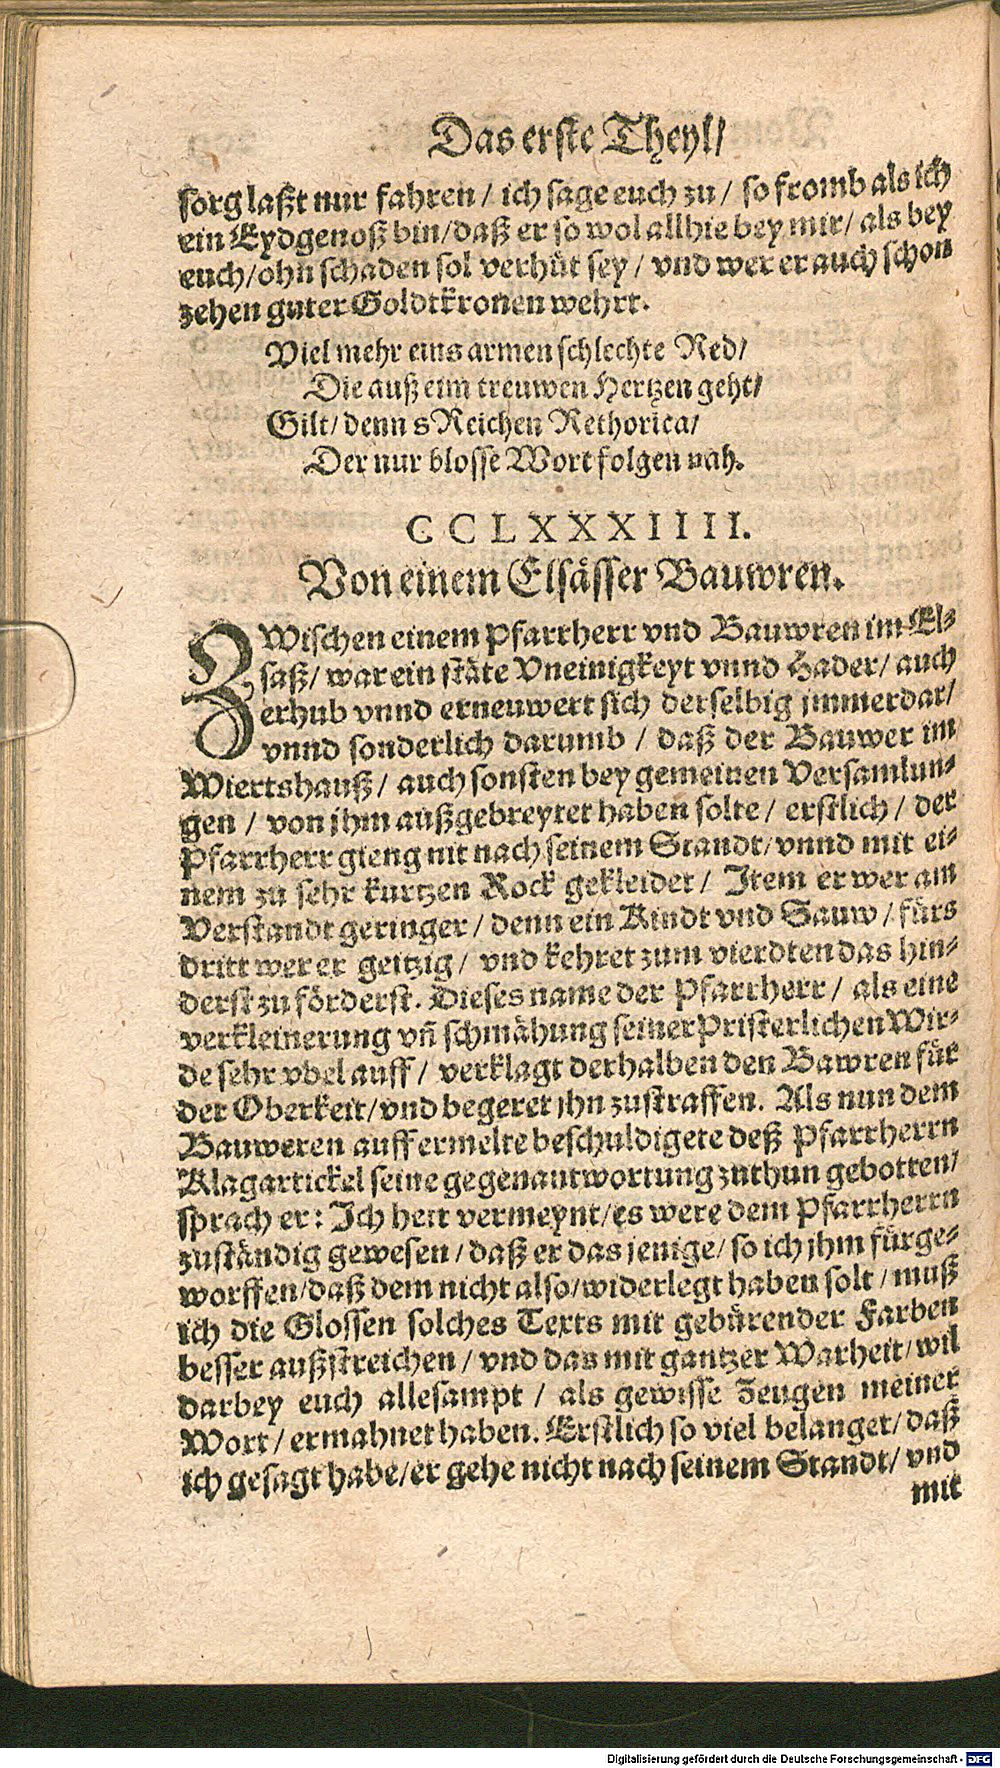 Das erste Theyl/
sorg laßt nur fahren / ich sage euch zu / so fromb als ich
ein Eydgenoß bin/daß er so wol allhie bey mir/ als bey
euch/ohn schaden sol verhüt sey / vnd wer er auch schon
zehen guter Goldtkronen wehrt.
Viel mehr eins armen schlechte Red/
Die auß eim treuwen Hertzen geht/
Gilt/ denn s Reichen Rethorica/
Der nur blosse Wort folgen nah.
CCLXXXIIII.
Von einem Elsässer Bauwren.
ZWischen einem Pfarrherr vnd Bauwren im El-
saß/ war ein stäte Vneinigkeyt vnnd Hader/ auch
erhub vnnd erneuwert sich derselbig jmmerdar/
vnnd sonderlich darumb / daß der Bauwer im
Wiertshauß / auch sonsten bey gemeinen Versamlun-
gen / von jhm außgebreytet haben solte / erstlich / der
Pfarrherr gieng nit nach seinem Standt/ vnnd mit ei-
nem zu sehr kurtzen Rock gekleidet / Item er wer am
Verstandt geringer / denn ein Rindt vnd Sauw / fürs
dritt wer er geitzig / vnd kehret zum vierdten das hin-
derst zu förderst. Dieses name der Pfarrherr / als eine
verkleinerung vñ schmähung seiner Pristerlichen Wir-
de sehr vbel auff / verklagt derhalben den Bawren für
der Oberkeit/vnd begeret jhn zustraffen. Als nun dem
Bauweren auff ermelte beschuldigete deß Pfarrherrn
Klagartickel seine gegenantwortung zuthun gebotten/
sprach er: Ich hett vermeynt/es were dem Pfarrherrn
zuständig gewesen / daß er das jenige/ so ich jhm fürge-
worffen/daß dem nicht also/widerlegt haben solt / muß
ich die Glossen solches Texts mit gebürender Farben
besser außstreichen / vnd das mit gantzer Warheit/ wil
darbey euch allesampt / als gewisse Zeugen meiner
Wort/ ermahnet haben. Erstlich so viel belanget/ daß
ich gesagt habe/er gehe nicht nach seinem Standt/ vnd
mit
Digitalisierung gefördert durch die Deutsche Forschungsgemeinschaft - DFG